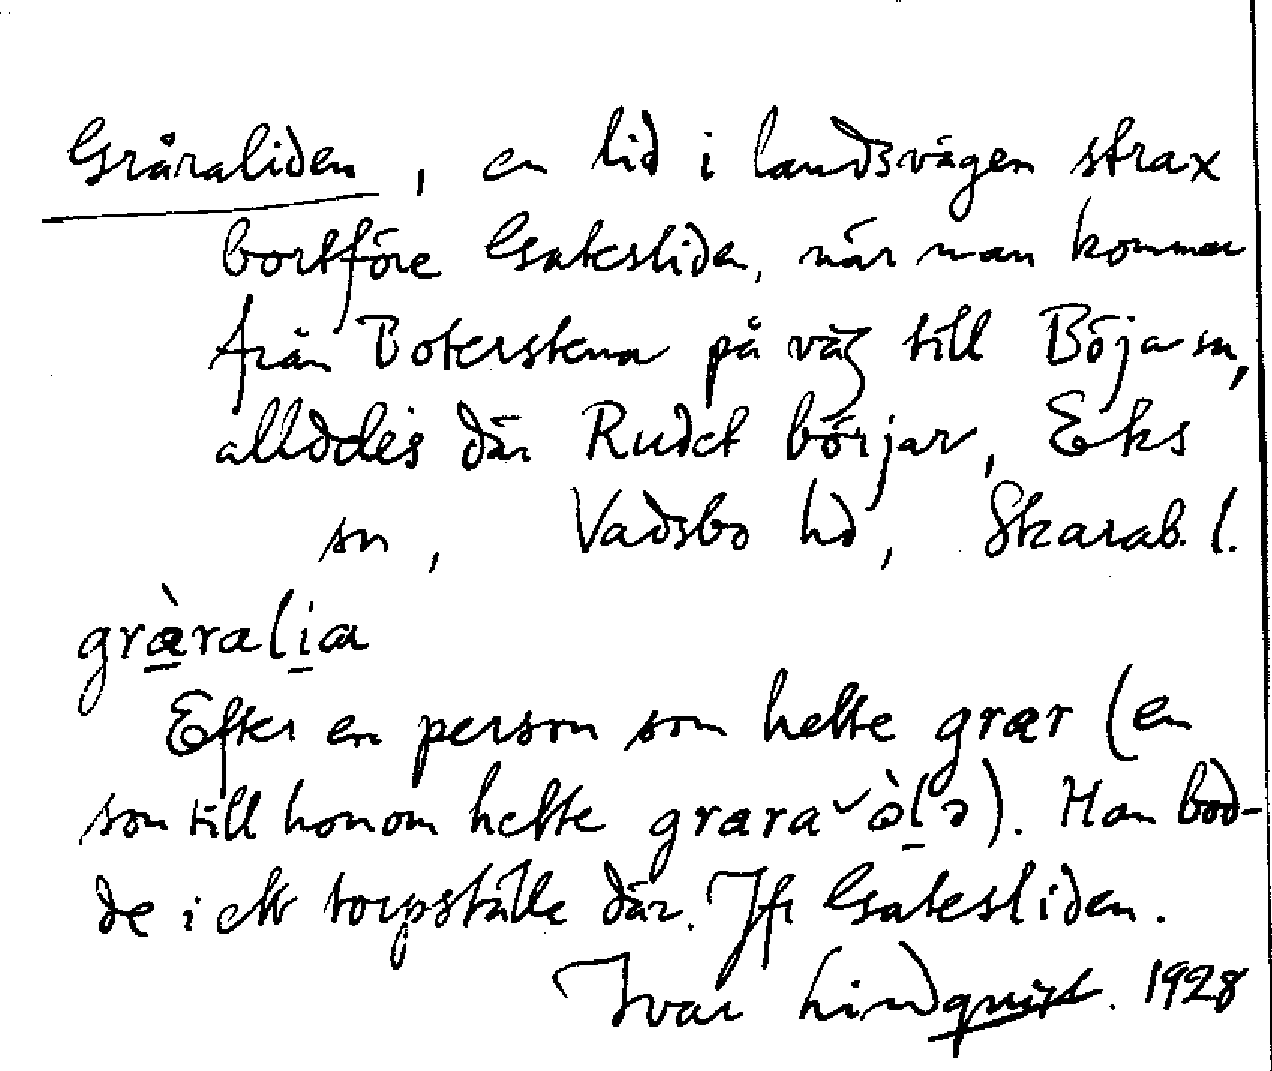 Gråraliden, en lid i landsvägen strax
bortföre Gatesliden, när man kommer
från Boterstena på väg till Böja sn,
alldeles där Rudet börjar, Eks
sn, Vadsbo hd, Skarab. l.
græ̀ralia
Efter en person som hette grær (en
son till honom hette grara ò̱lə). Han bod-
de i ett torpställe där. Jfr Gatesliden.
Ivar Lindquist. 1928